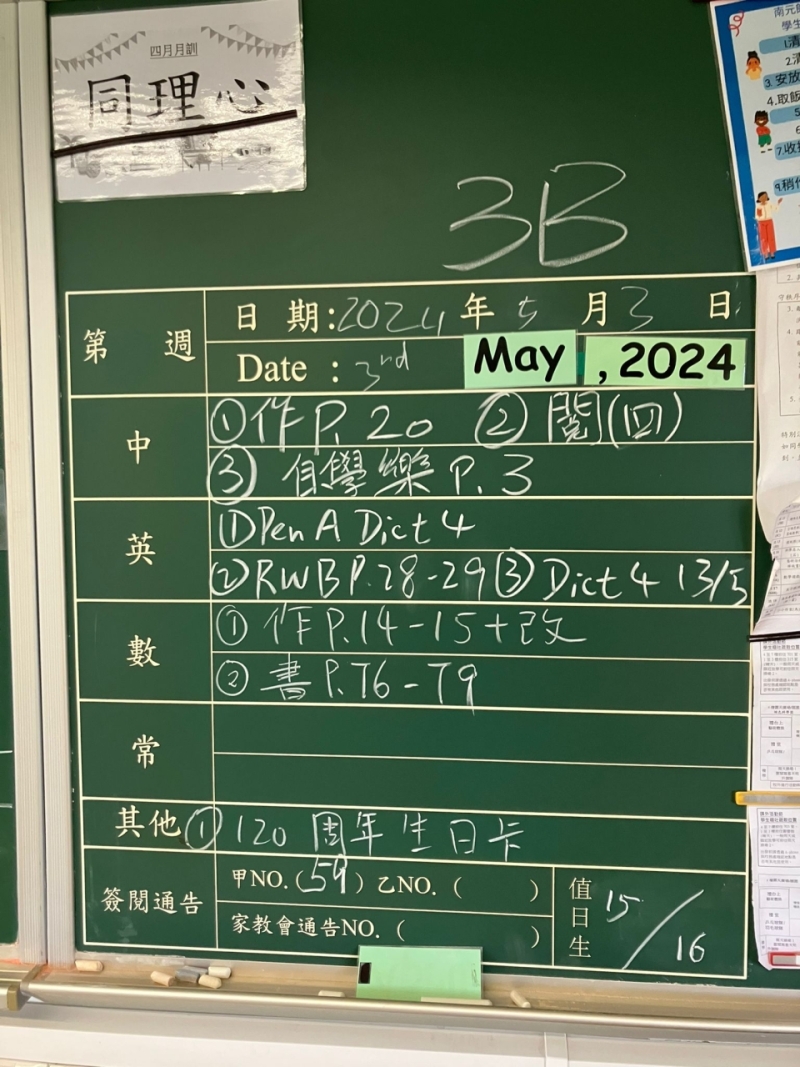 四月月訓
同理心
3B
第 週
日 期:2024年5月3日
Date : 3rd May , 2024
中
①作P.20 ②閱(四)
③ 自學樂 P.3
英
①Pen A Dict 4
②RWB P.28-29 ③ Dict 4 13/5
數
① 作P.14-15+改
② 書P.76-79
常
其他 ① 120 周年生日卡
簽閱通告
甲NO.(59) 乙NO. ( )
家教會通告NO. ( )
值日生 15/16